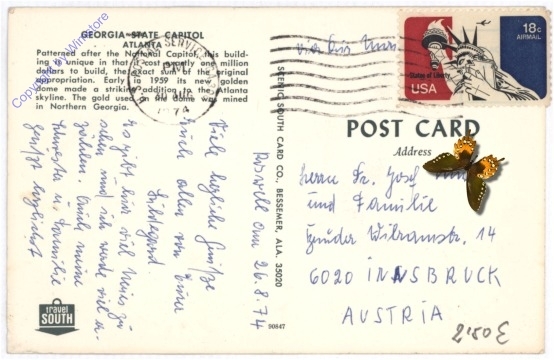 GEORGIA STATE CAPITOL
ATLANTA
Patterned after the National Capitol, this build-
ing is unique in that it cost exactly one million
dollars to build, the exact sum of the original
appropriation. Early in 1959 its new golden
dome made a striking addition to the Atlanta
skyline. The gold used on the dome was mined
in Northern Georgia.
Copyright by Winestore
PM
1974
18c
AIRMAIL
Statue of Liberty
USA
POST CARD
Address
Herrn Dr. Josef
und Familie
14
6020 INNSBRUCK
AUSTRIA
SCENIC SOUTH CARD CO., BESSEMER, ALA. 35020
90847
26.8.74
Viele herzliche Grüße
Euch allen von Eurer
Hildegard
Es gibt hier viel Neues zu
sehen und ich
Auch meine
Schwester u. Familie
grüßt herzlichst
travel
SOUTH
2.50 E